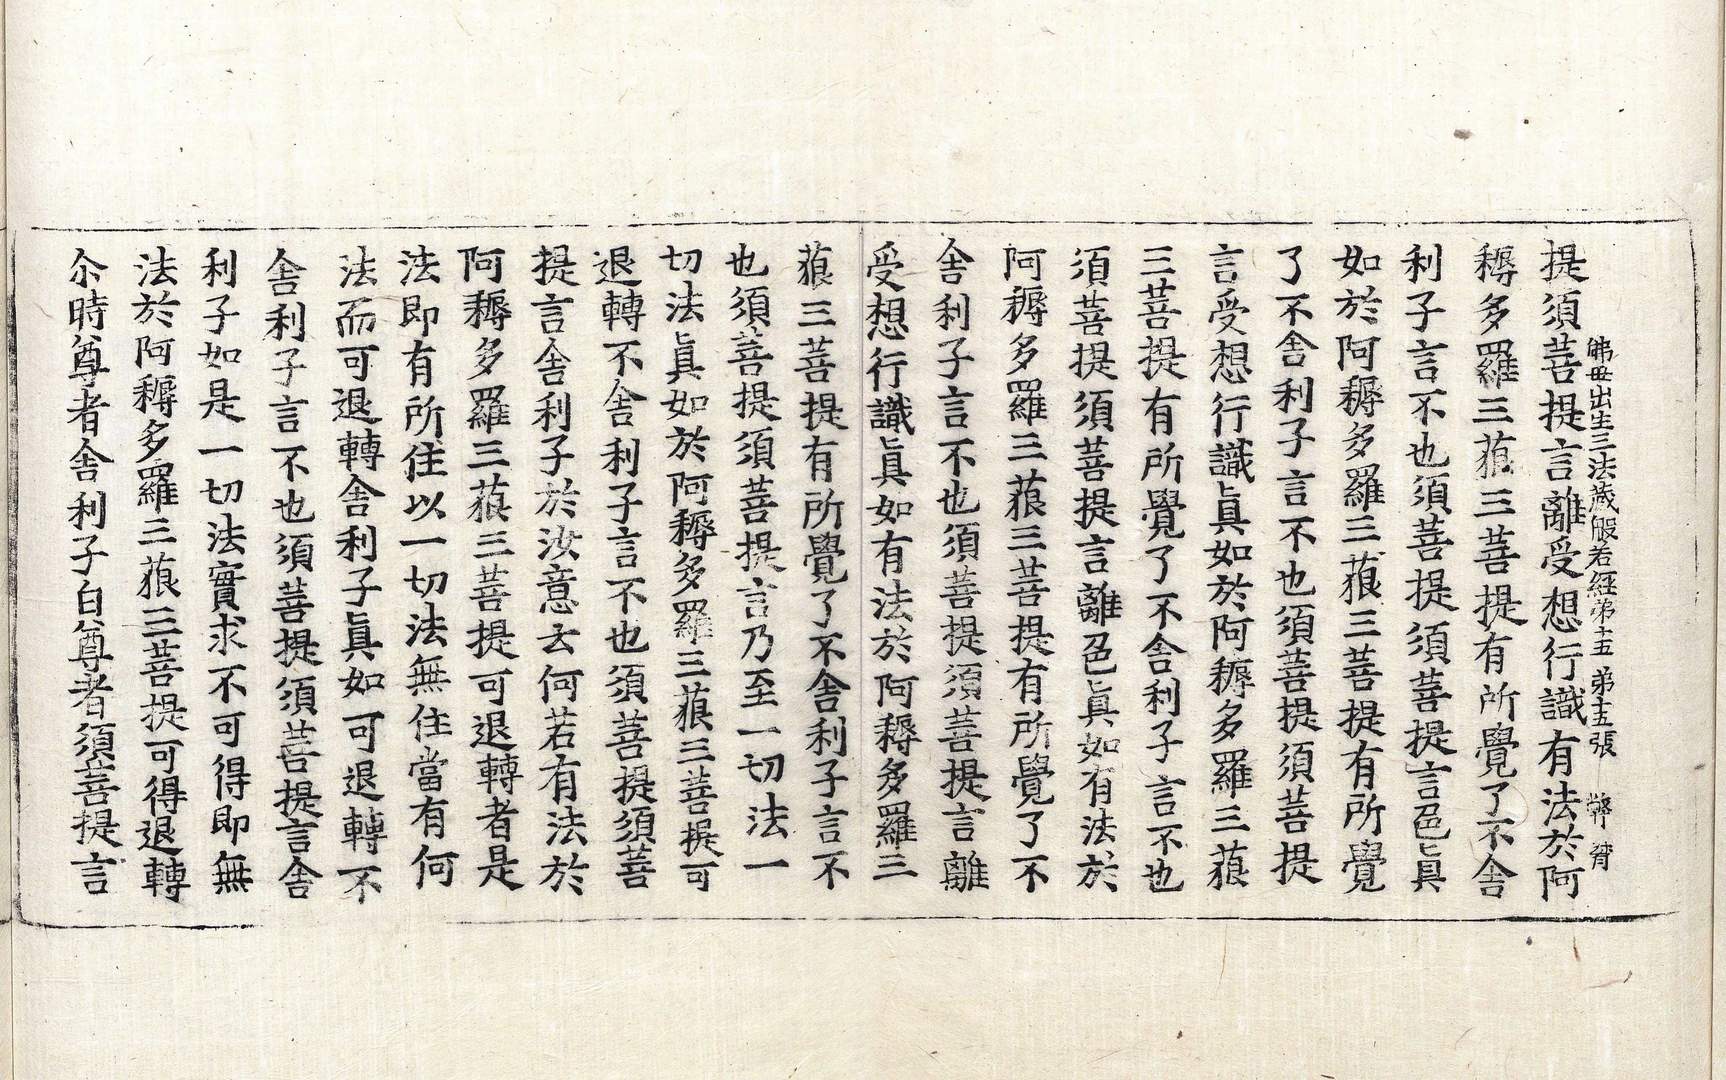 佛母出生三法藏般若經第十五 第十五張
提須菩提言離受想行識有法於阿
耨多羅三藐三菩提有所覺了不舍
利子言不也須菩提須菩提言色眞
如於阿耨多羅三藐三菩提有所覺
了不舍利子言不也須菩提須菩提
言受想行識眞如於阿耨多羅三藐
三菩提有所覺了不舍利子言不也
須菩提須菩提言離色眞如有法於
阿耨多羅三藐三菩提有所覺了不
舍利子言不也須菩提須菩提言離
受想行識眞如有法於阿耨多羅三
藐三菩提有所覺了不舍利子言不
也須菩提須菩提言乃至一切法一
切法眞如於阿耨多羅三藐三菩提可
退轉不舍利子言不也須菩提須菩
提言舍利子於汝意云何若有法於
阿耨多羅三藐三菩提可退轉者是
法即有所住以一切法無住當有何
法而可退轉舍利子眞如可退轉不
舍利子言不也須菩提須菩提言舍
利子如是一切法實求不可得即無
法於阿耨多羅三藐三菩提可得退轉
尒時尊者舍利子白尊者須菩提言